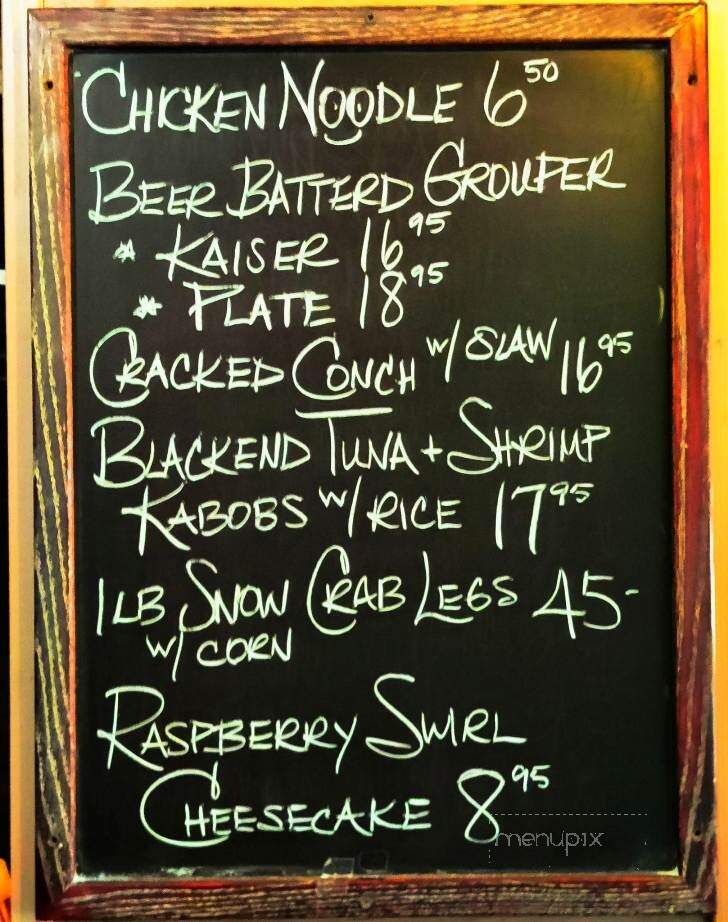 CHICKEN NOODLE 6 50
BEER BATTERD GROUPER
* KAISER 16 95
* PLATE 18 95
CRACKED CONCH w/ SLAW 16 95
BLACKEND TUNA + SHRIMP
KABOBS w/ RICE 17 95
1 LB SNOW CRAB LEGS 45-
w/ CORN
RASPBERRY SWIRL
CHEESECAKE 8 95
menupix